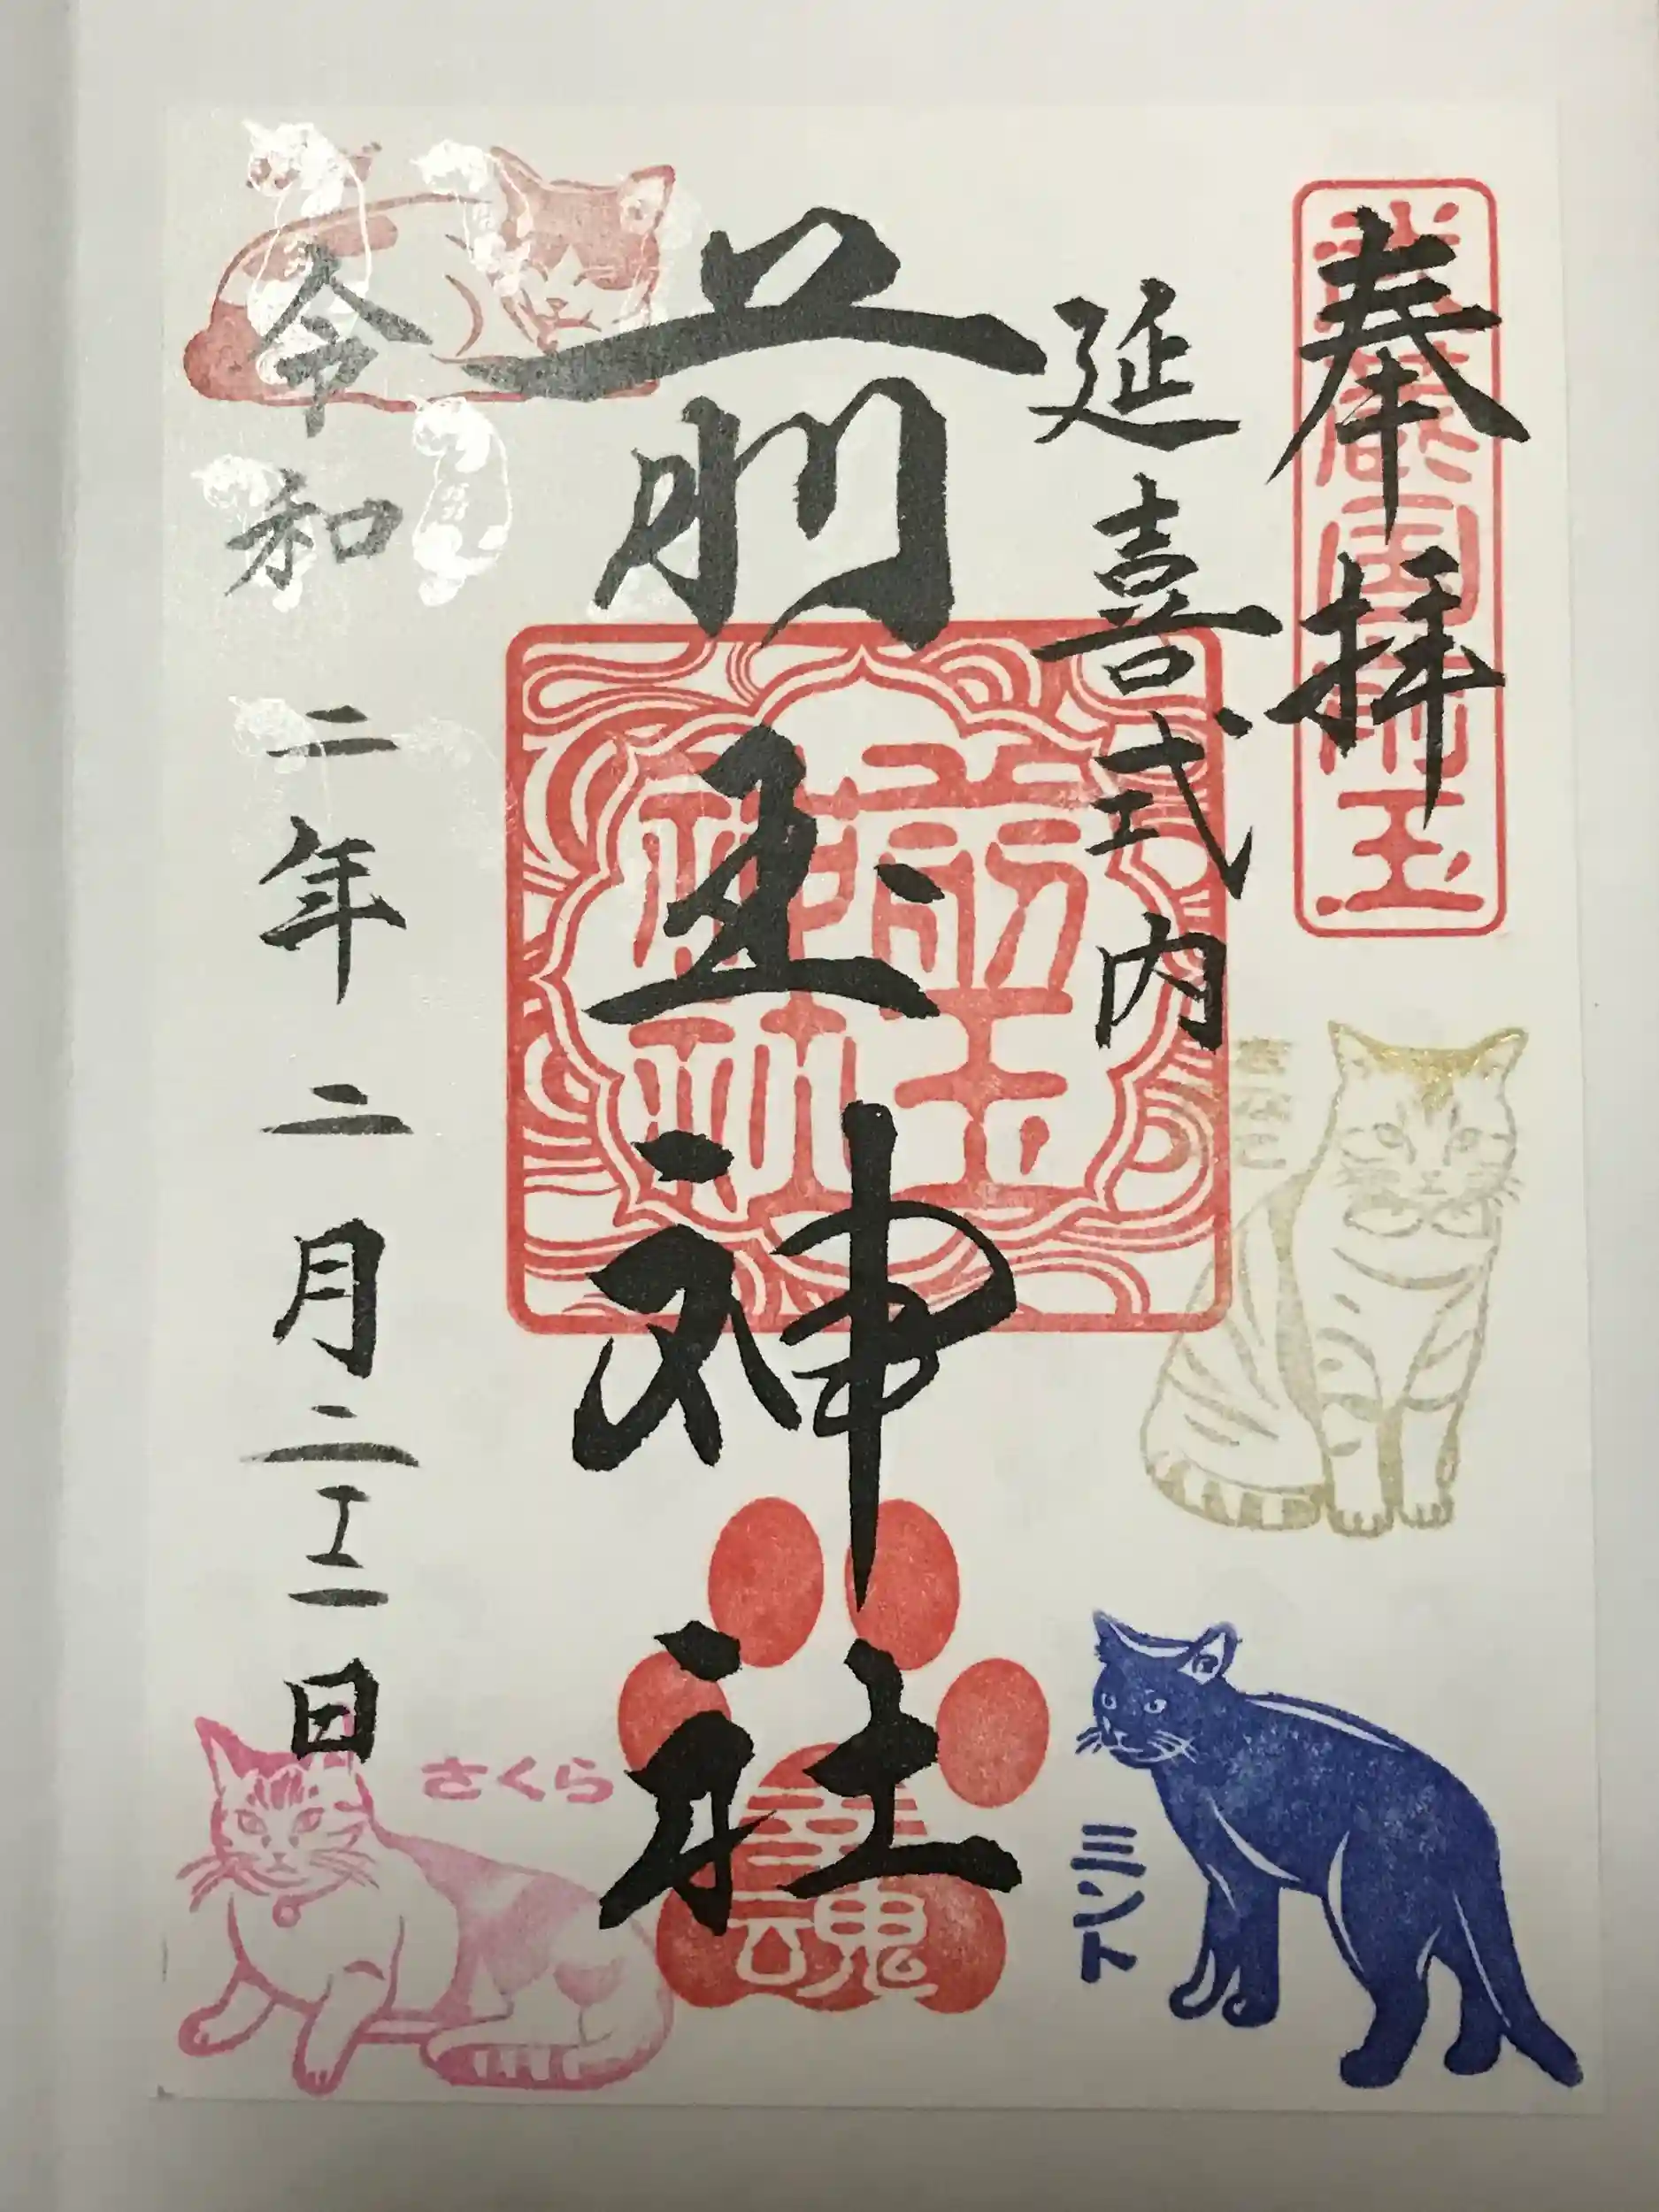 奉拝
武蔵国前玉
延喜式内
前玉神社
前玉神社
幸魂
きなこ
ミント
令和二年二月二十二日
さくら